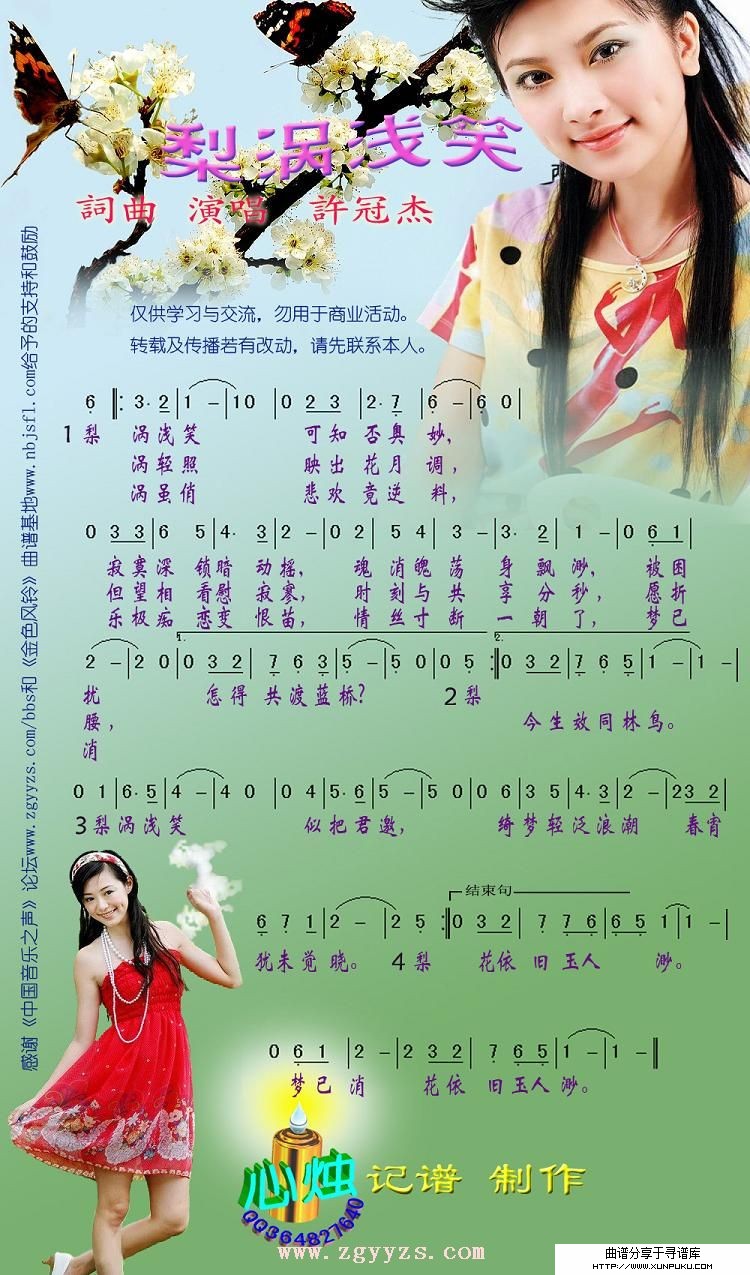 梨涡浅笑
詞曲 演唱 許冠杰
仅供学习与交流，勿用于商业活动。
转载及传播若有改动，请先联系本人。
感谢《中国音乐之声》论坛www.zgyyzs.com/bbs和《金色风铃》曲谱基地www.nbjsfl.com给予的支持和鼓励
6 ‖: 3· 2 | 1 - | 1 0 | 0 2 3 | 2· 7 | 6 - | 6 0 |
1梨 涡浅笑 可知否奥妙，
涡轻照 映出花月调，
涡虽俏 悲欢竟逆料，
0 3 3 | 6 5 | 4· 3 | 2 - | 0 2 | 5 4 | 3 - | 3· 2 | 1 - | 0 6 1 |
寂寞深锁暗动摇， 魂消魄荡身飘渺， 被困
但望相看慰寂寥， 时刻与共享分秒， 愿折
乐极痴恋变恨苗， 情丝寸断一朝了， 梦已
1. 2.
2 - | 2 0 | 0 3 2 | 7 6 3 | 5 - | 5 0 | 0 5 :‖ 0 3 2 | 7 6 5 | 1 - | 1 - |
扰 怎得共渡蓝桥? 2梨
腰， 今生效同林鸟。
消
0 1 | 6· 5 | 4 - | 4 0 | 0 4 | 5· 6 | 5 - | 5 0 | 0 6 | 3 5 | 4· 3 | 2 - | 2 3 2 |
3梨涡浅笑 似把君邀， 绮梦轻泛浪潮 春宵
结束句
6 7 1 | 2 - | 2 5 :‖ 0 3 2 | 7 7 6 | 6 5 | 1 - | 1 - |
犹未觉晓。 4梨 花依旧玉人 渺。
0 6 1 | 2 - | 2 3 2 | 7 6 5 | 1 - | 1 - ‖
梦已消 花依旧玉人渺。
心烛 记谱 制作
QQ364827640
www.zgyyzs.com
曲谱分享于寻谱库
HTTP://WWW.XUNPUKU.COM